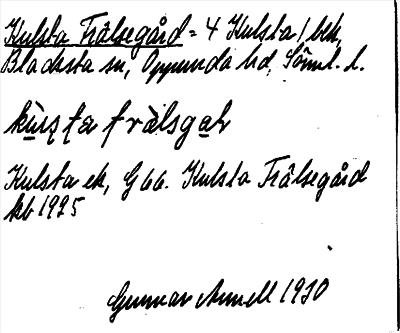 Kulsta Frälsegård = 4 Kulsta 1, bek,
Blacksta sn, Oppunda hd, Söml. l.
kùlsta fràlsgaḷ
Kulsta ek, G 66. Kulsta Frälsegård
kb 1925
Gunnar Annell 1930